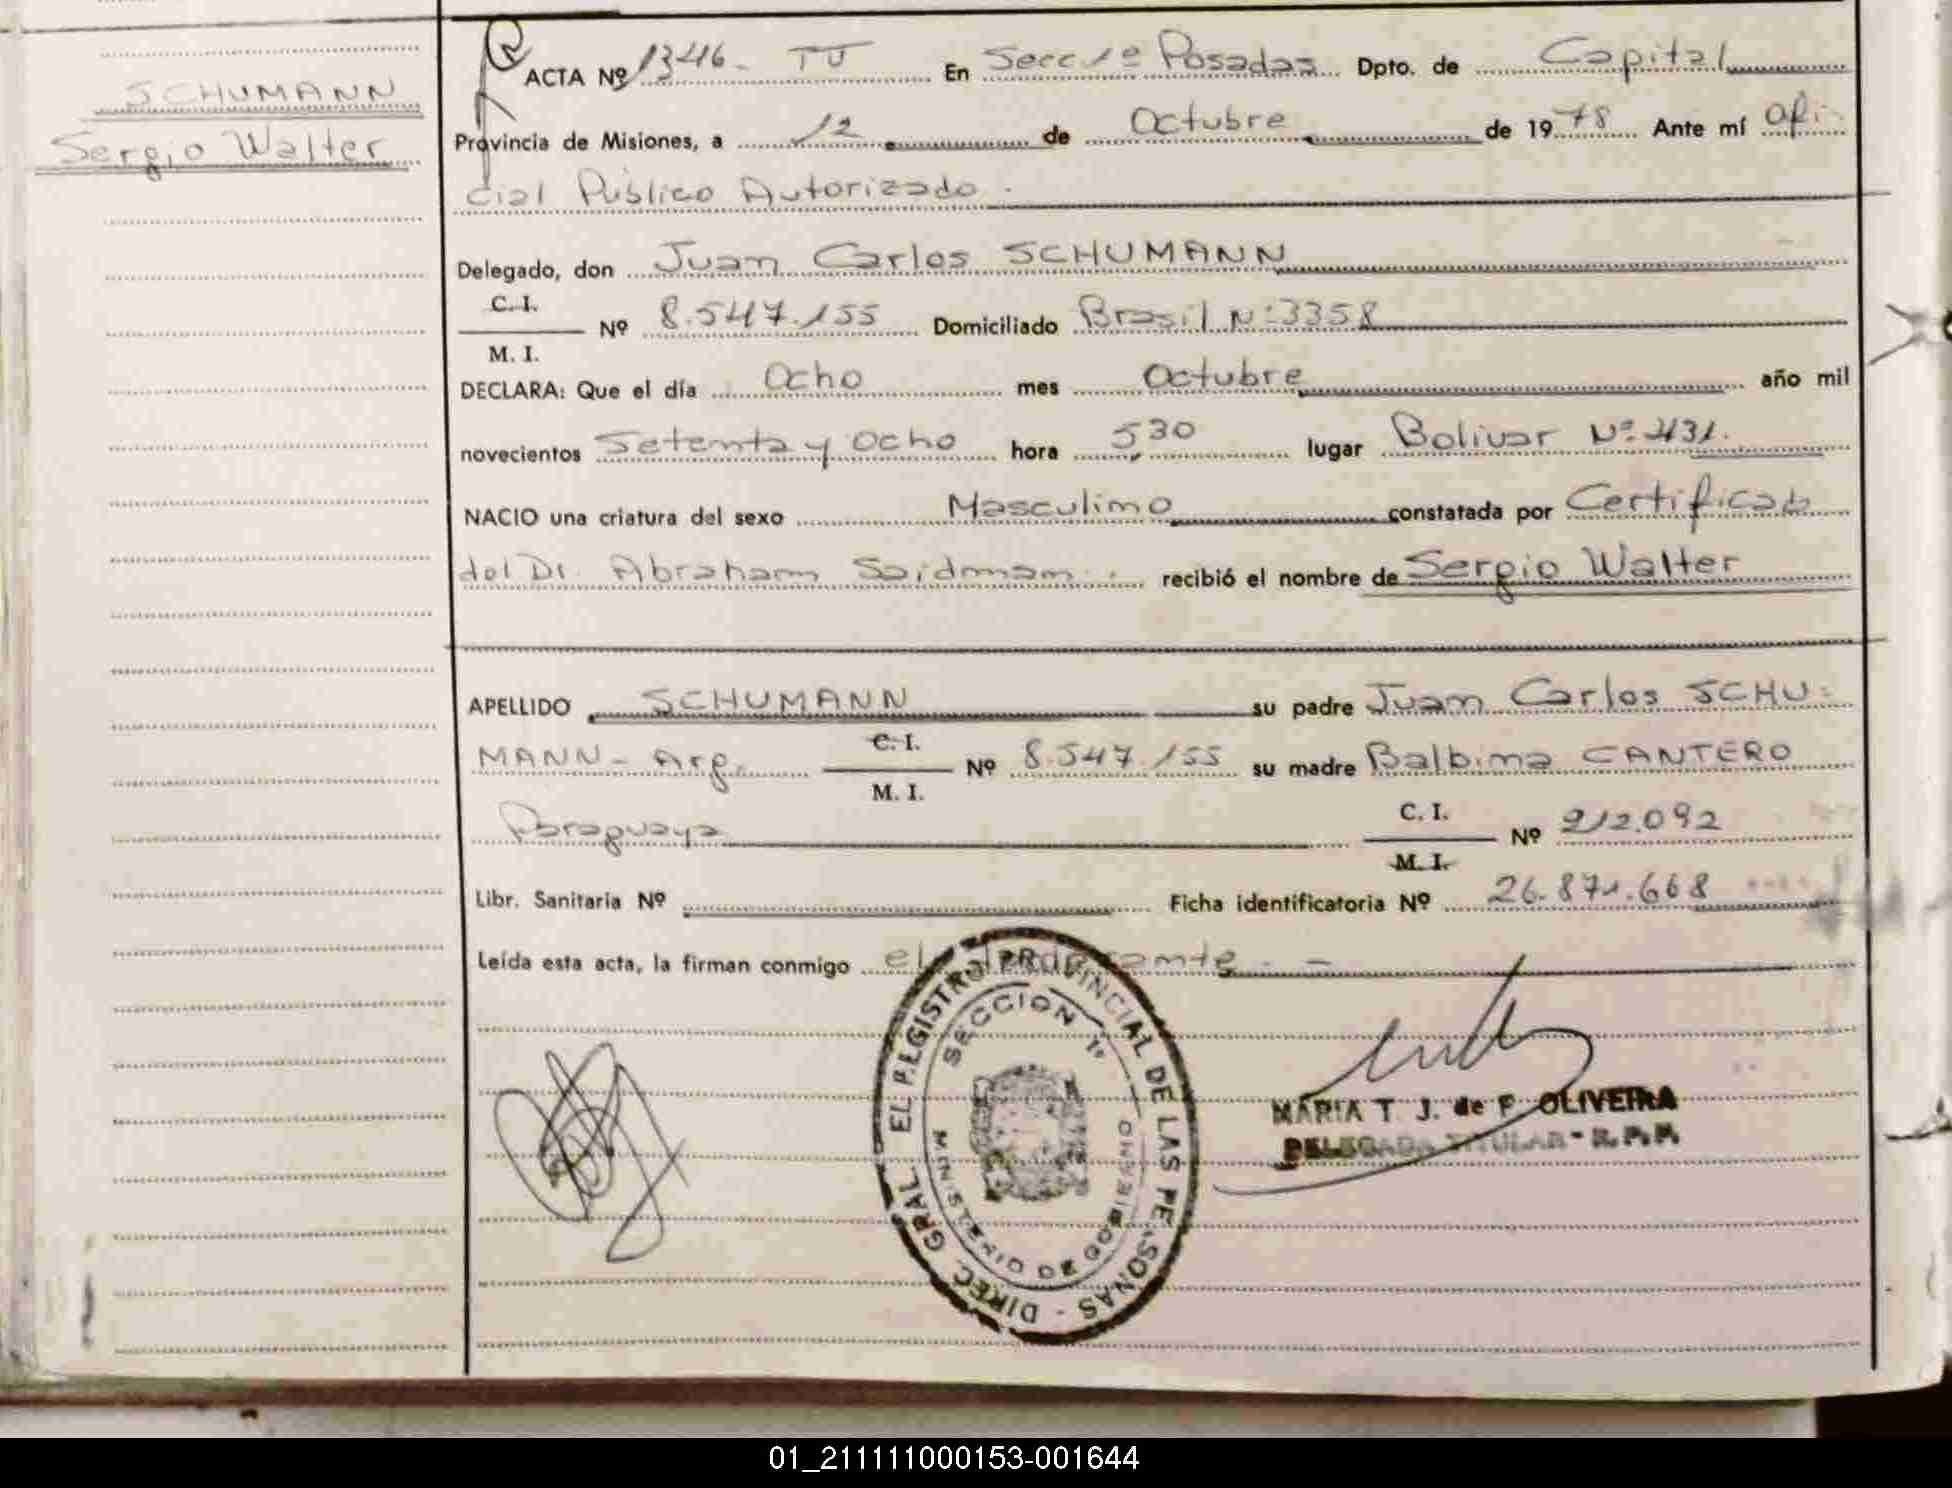 SCHUMANN
Sergio Walter
ACTA Nº 1346. TU En Secc 1º Posadas Dpto. de Capital
Provincia de Misiones, a 12 de Octubre de 1978 Ante mí Ofi-
cial Público Autorizado.
Delegado, don Juan Carlos SCHUMANN
C. I.
Nº 8.547.155 Domiciliado Brasil Nº 3358
M. I.
DECLARA: Que el día Ocho mes Octubre año mil
novecientos Setenta y Ocho hora 530 lugar Bolivar Nº 431.
NACIO una criatura del sexo Masculino constatada por Certificado
del Dr. Abraham Saidman. recibió el nombre de Sergio Walter
APELLIDO SCHUMANN su padre Juan Carlos SCHU-
C. I.
MANN - Arg. Nº 8.547.155 su madre Balbina CANTERO
M. I.
C. I.
Paraguaya Nº 212.092
M. I.
Libr. Sanitaria Nº Ficha identificatoria Nº 26.871.668
Leída esta acta, la firman conmigo el
DIREC. GRAL EL REGISTRO PROVINCIAL DE LAS PERSONAS -
SECCION 1º
MINISTERIO DE GOBIERNO
MARIA T. J. de F. OLIVEIRA
DELEGADA TITULAR - R. P. P.
01_211111000153-001644